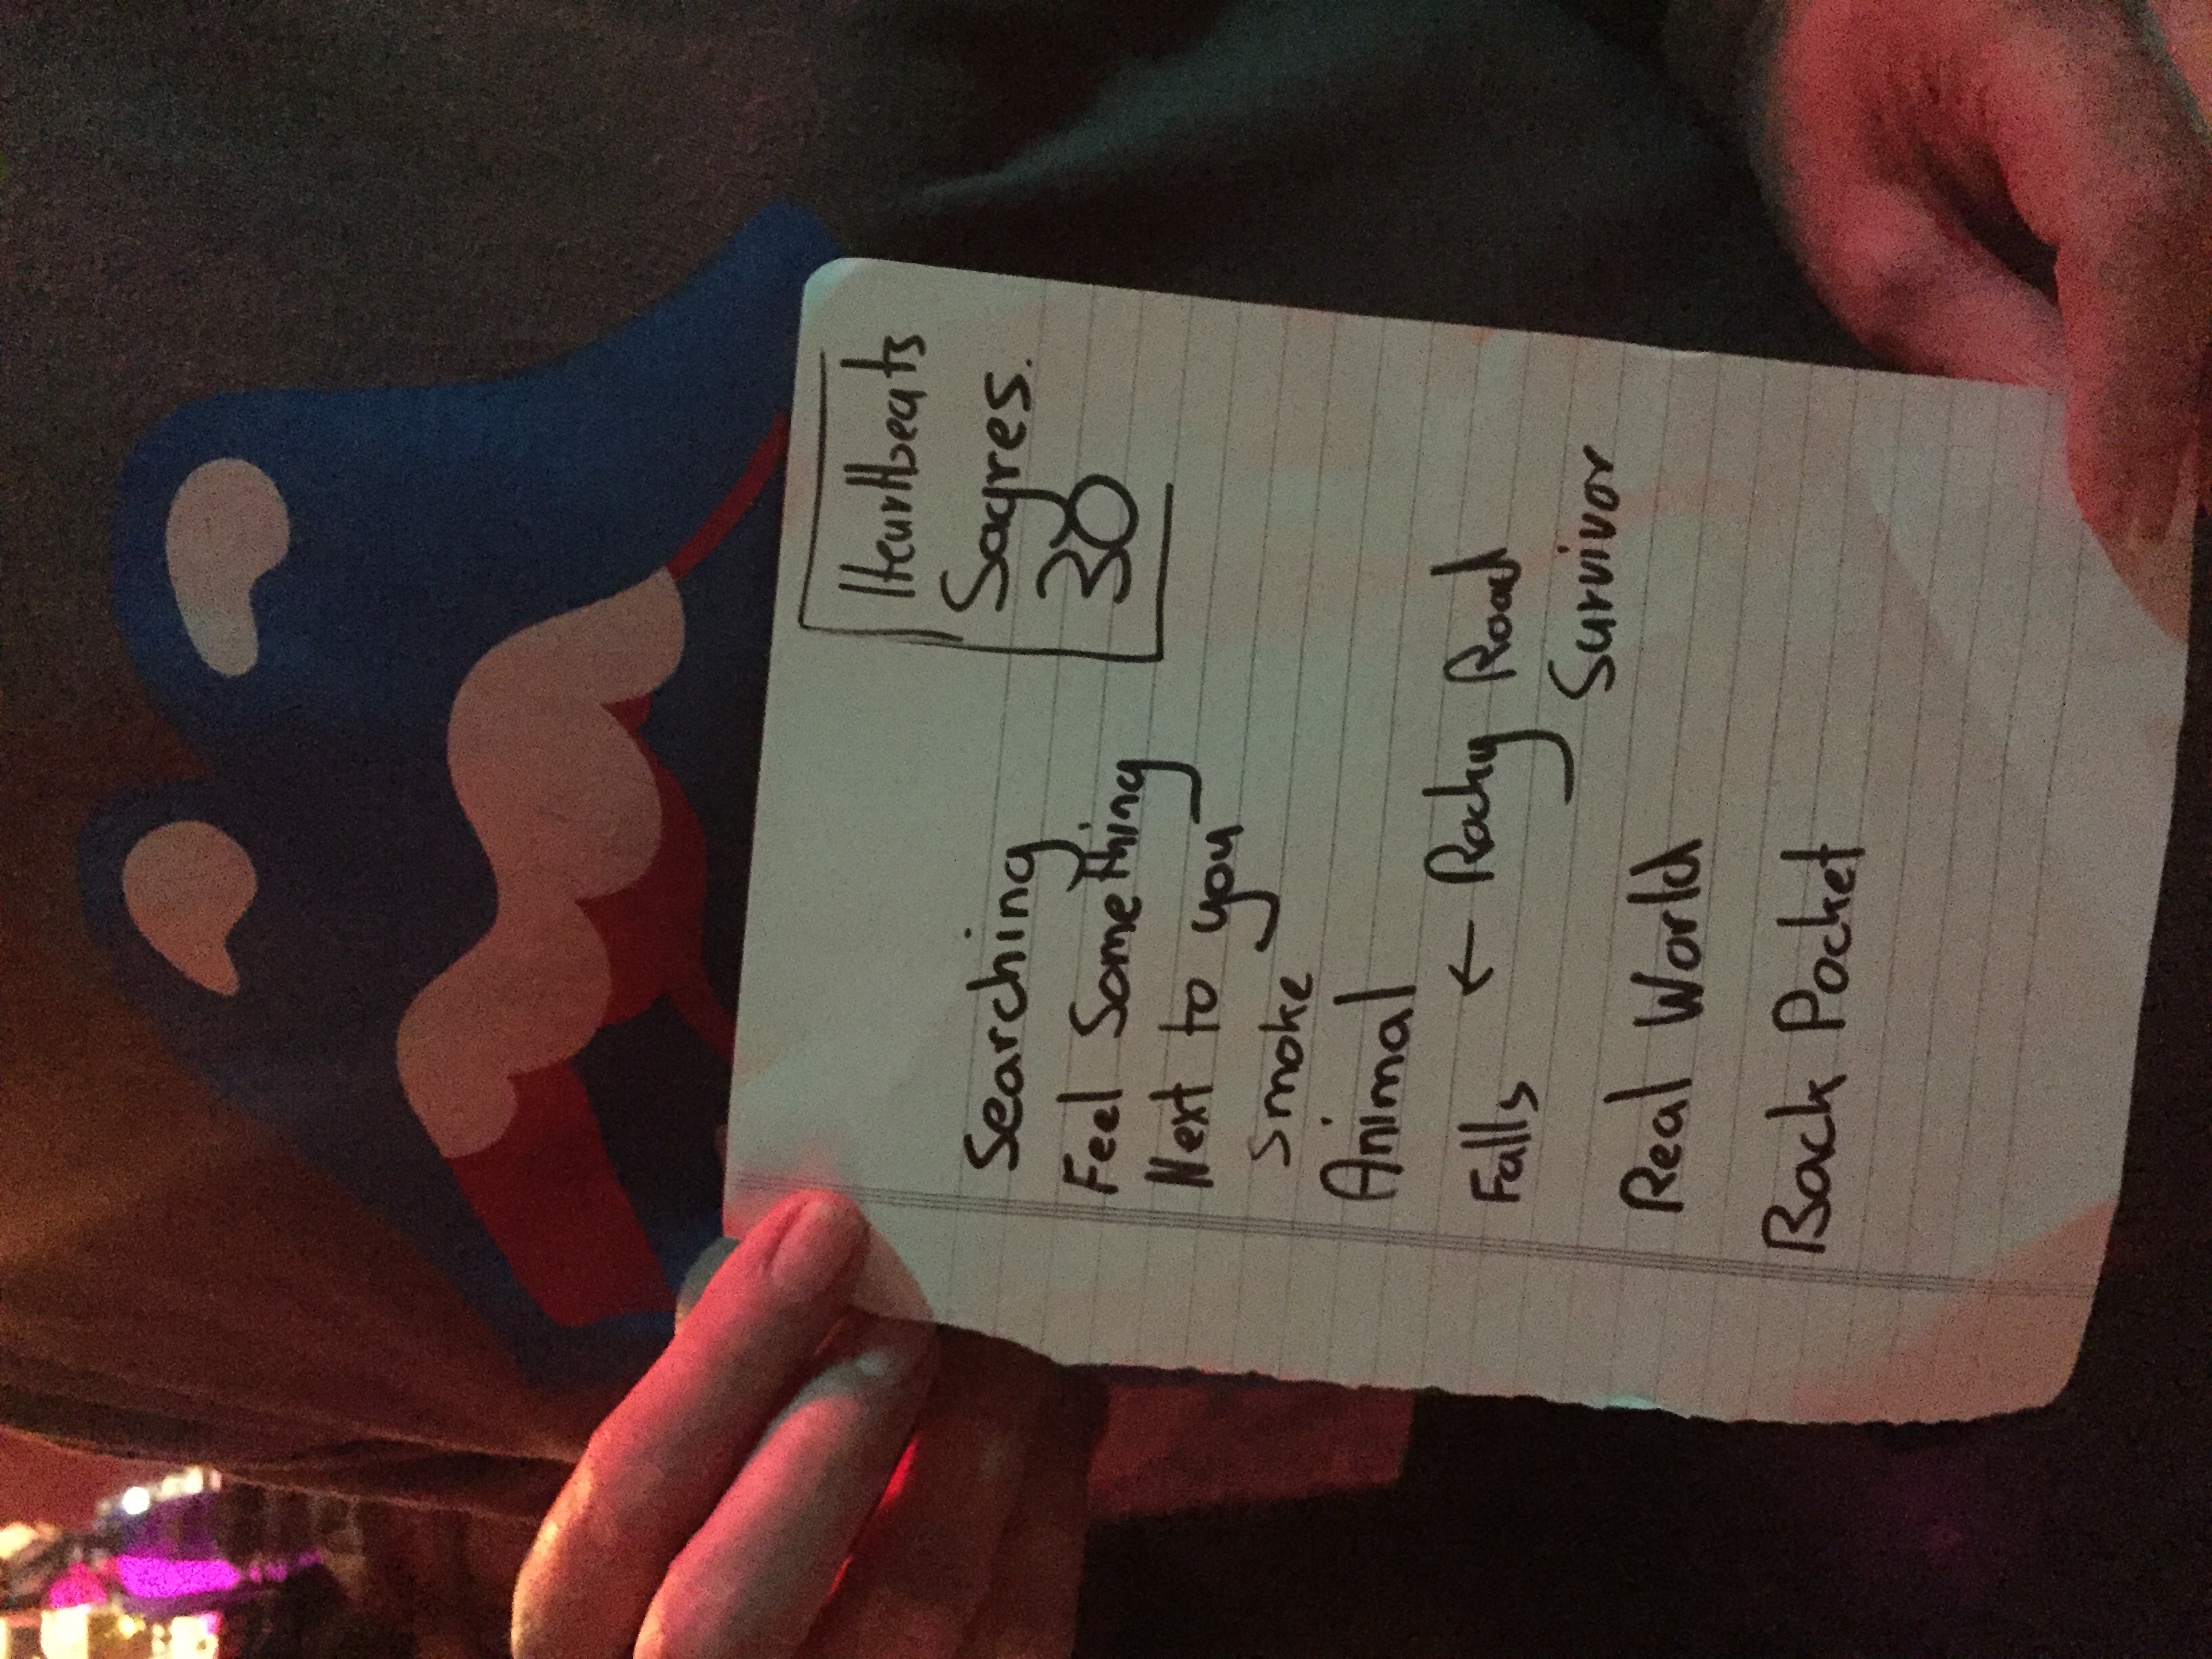 Heartbeats
Sagres.
30
Searching
Feel Something
Next to you
Smoke
Animal
Falls ← Rocky Road
Survivor
Real World
Back Pocket